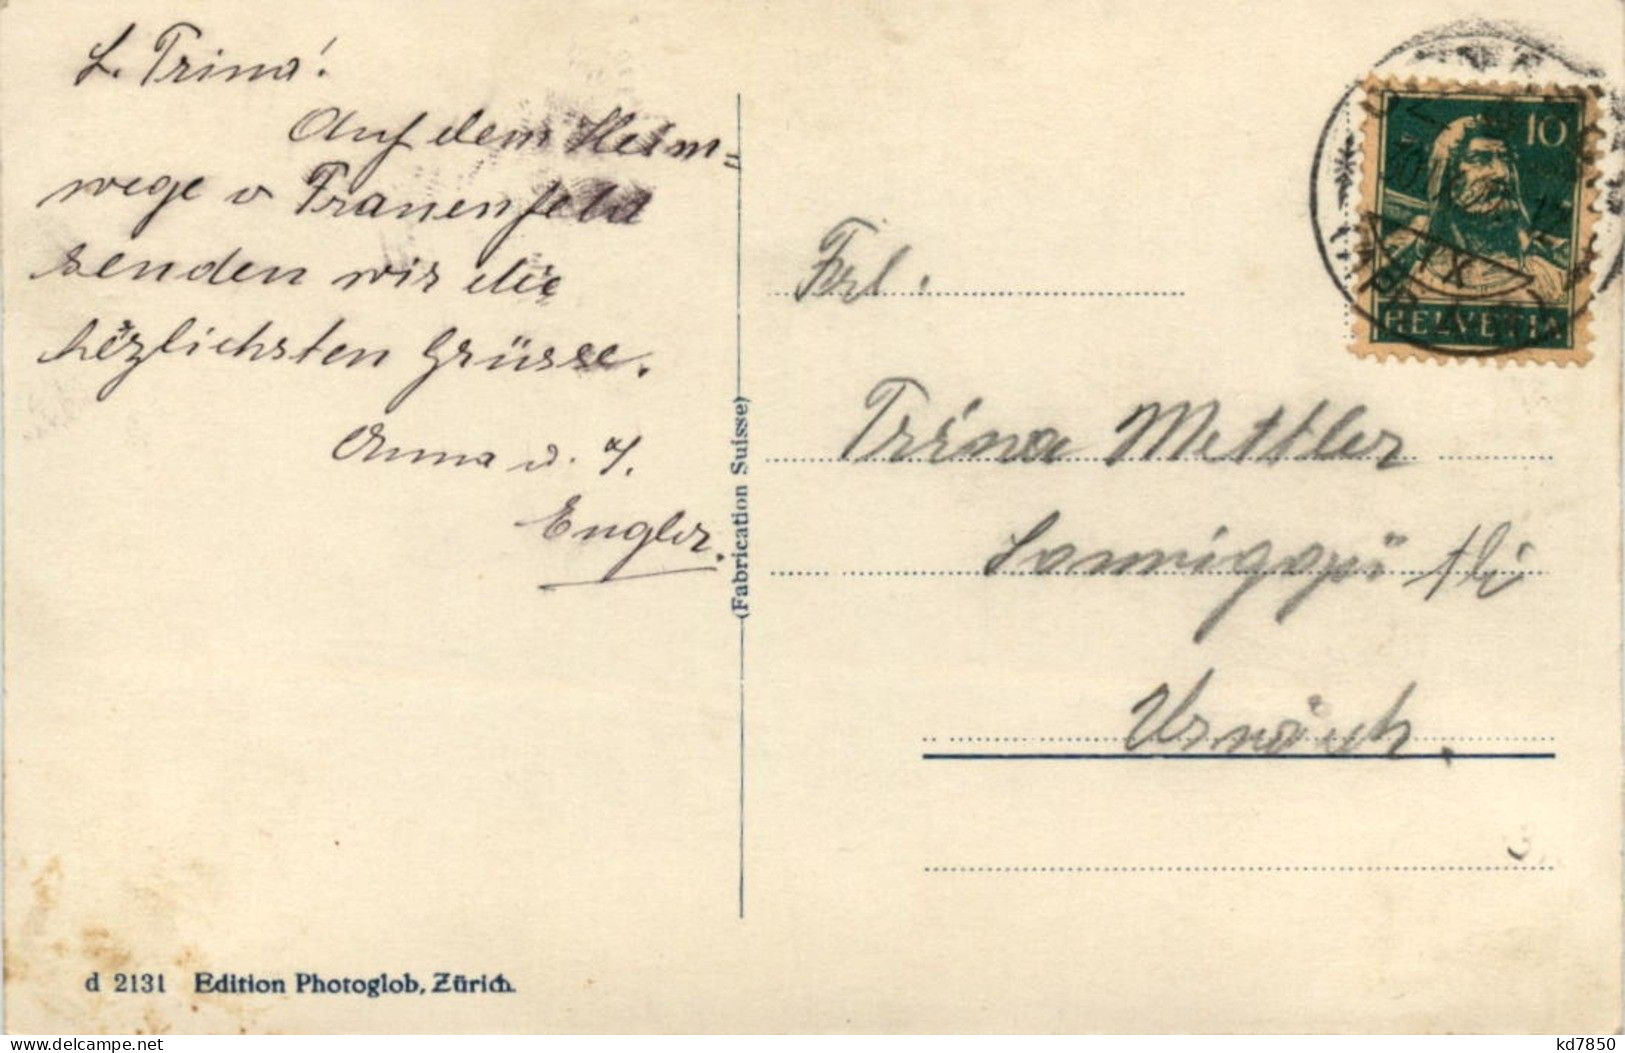 L. Trina!
Auf dem Heim=
wege v Frauenfeld
senden wir die
herzlichsten Grüsse.
Anna u. J.
Engler.
(Fabrication Suisse)
Frl.
Trina Mettler
Urnäsch.
10
HELVETIA
3.
d 2131 Edition Photoglob, Zürich.
kd7850